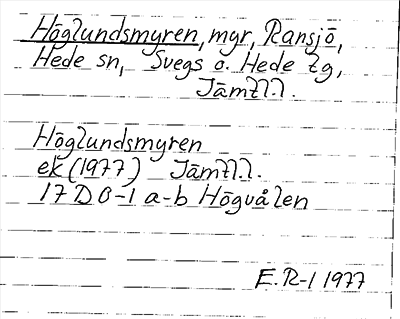 Höglundsmyren, myr, Ransjö,
Hede sn, Svegs o. Hede tg,
Jämtl.l.
Höglundsmyren
ek (1977) Jämtl.l.
17 D 0-1 a-b Högvålen
E.R-l 1977